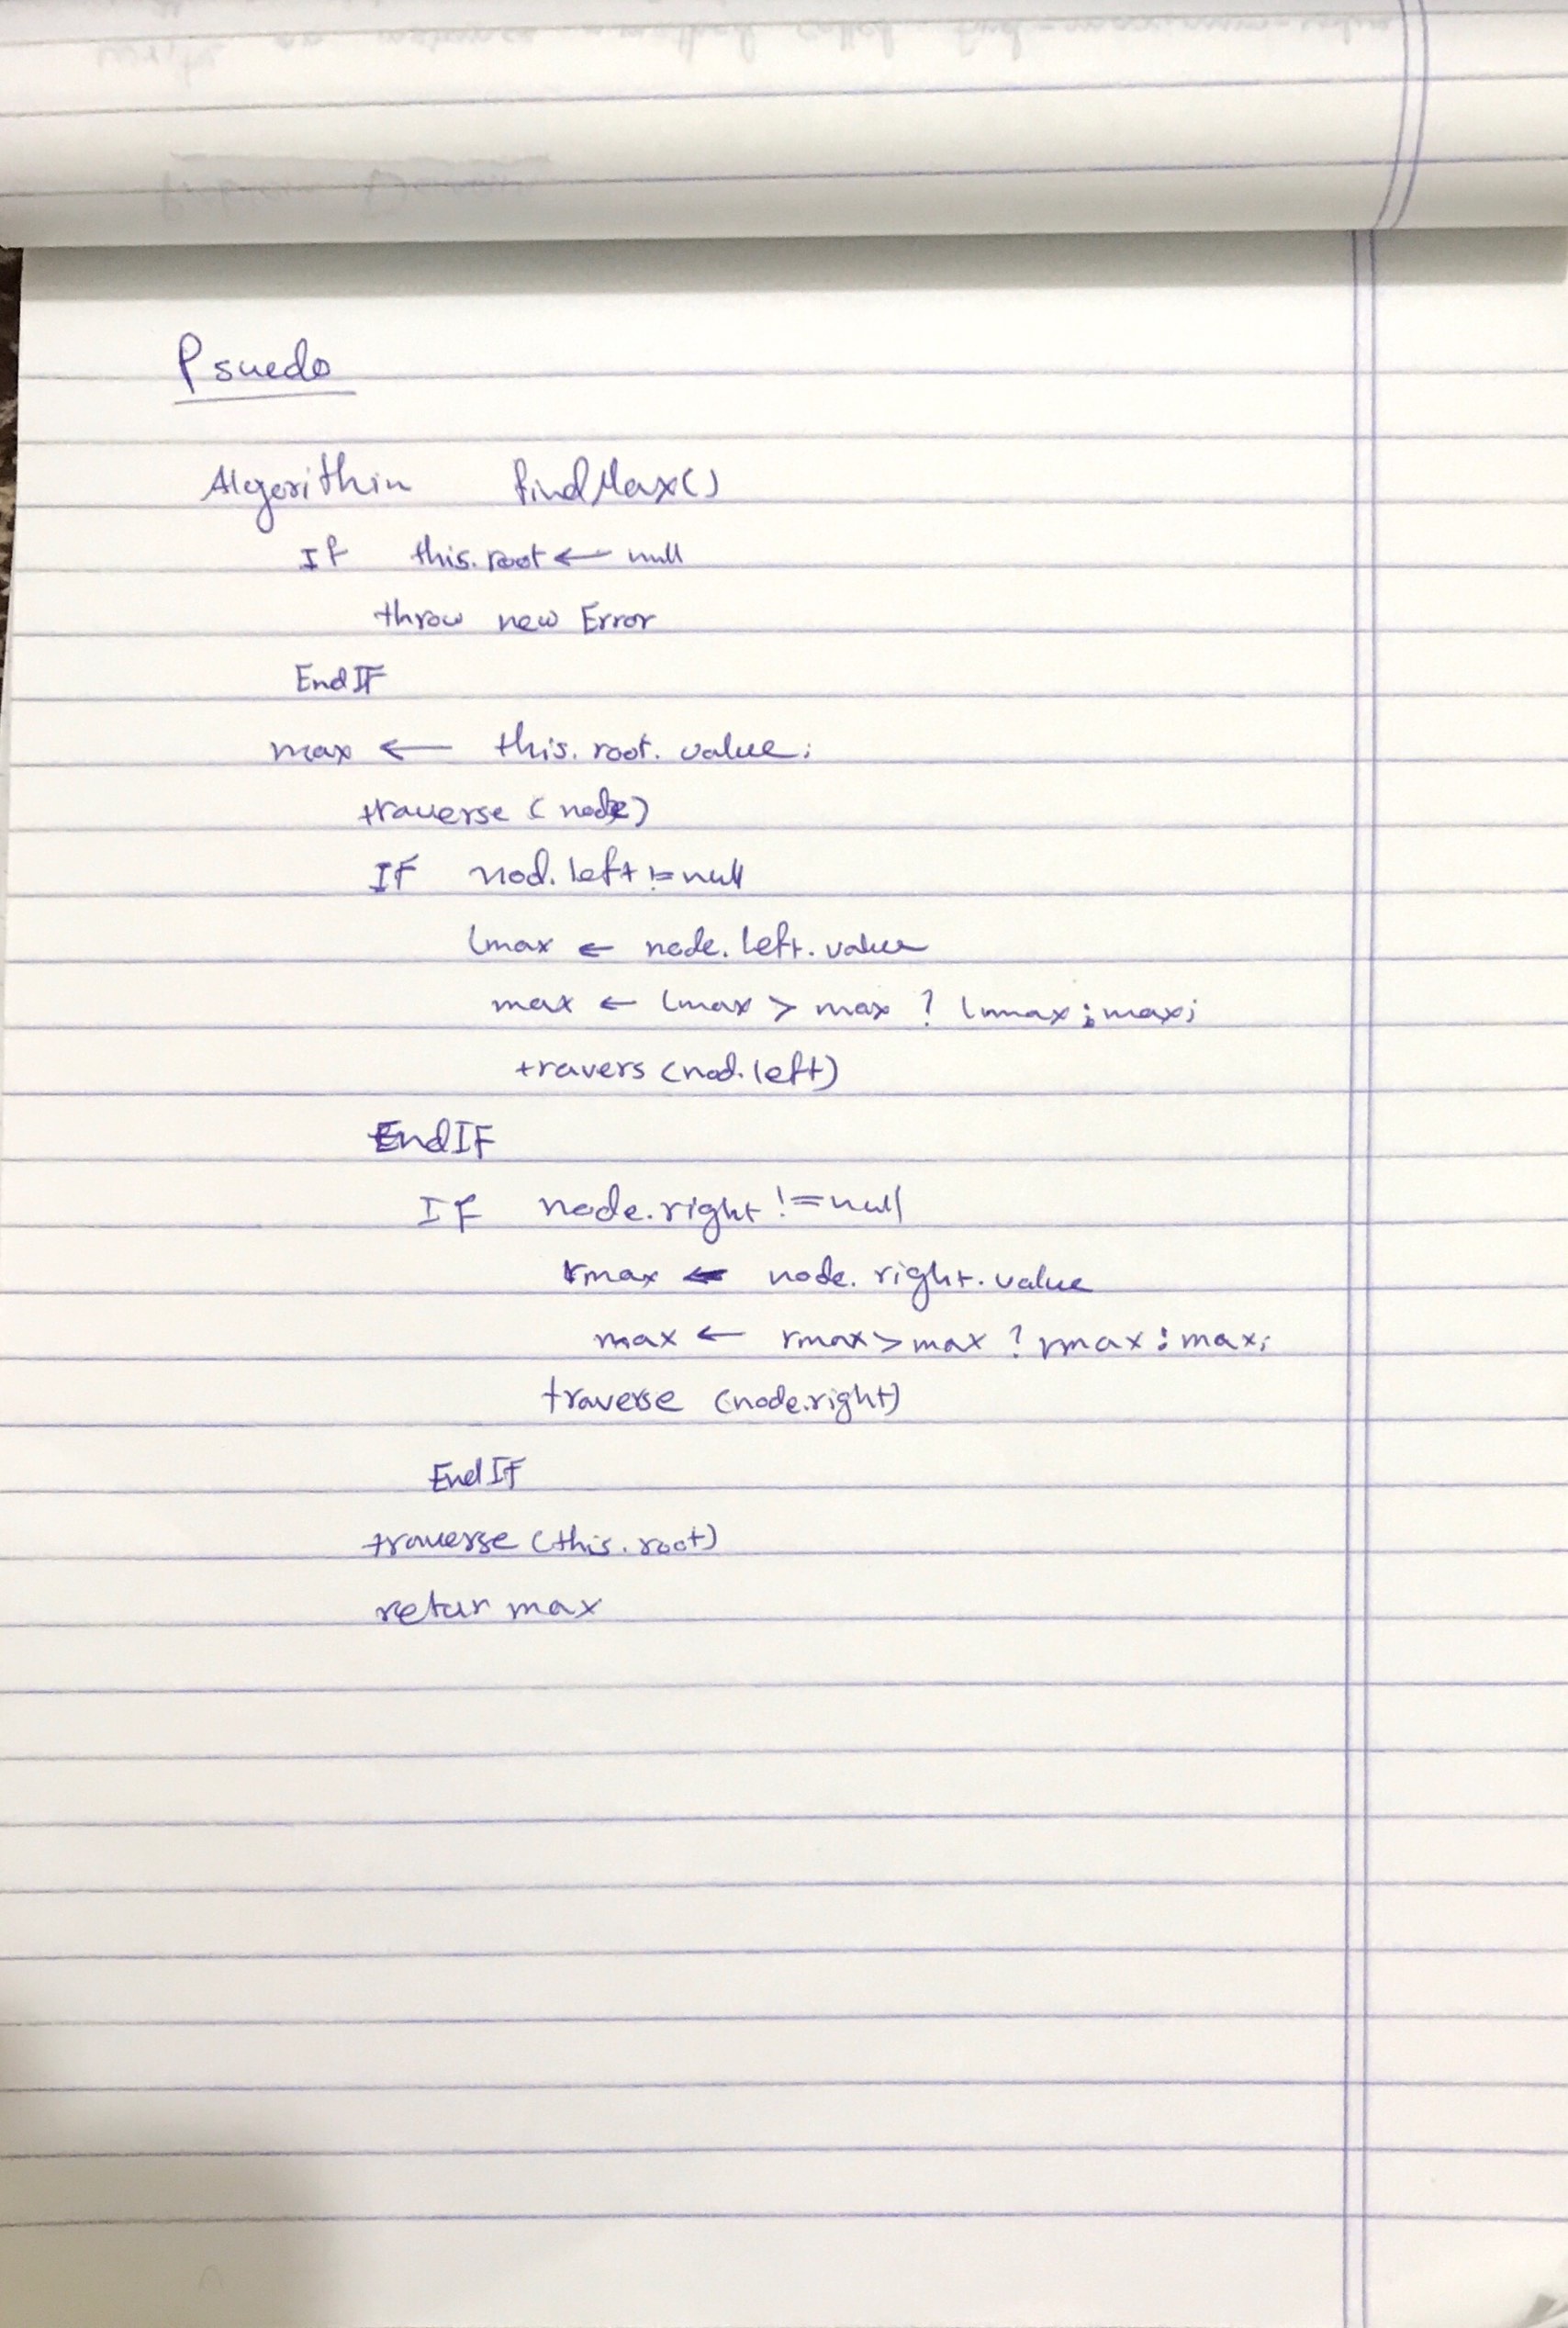 Psuedo
Algorithin findMax()
If this.root ← null
throw new Error
EndIF
max ← this.root.value;
traverse (node)
IF nod.left != null
lmax ← node.left.value
max ← lmax > max ? lmax ; max;
travers (nod.left)
EndIF
IF node.right != null
rmax ← node.right.value
max ← rmax > max ? rmax : max;
traverse (node.right)
EndIF
traverse (this.root)
retur max